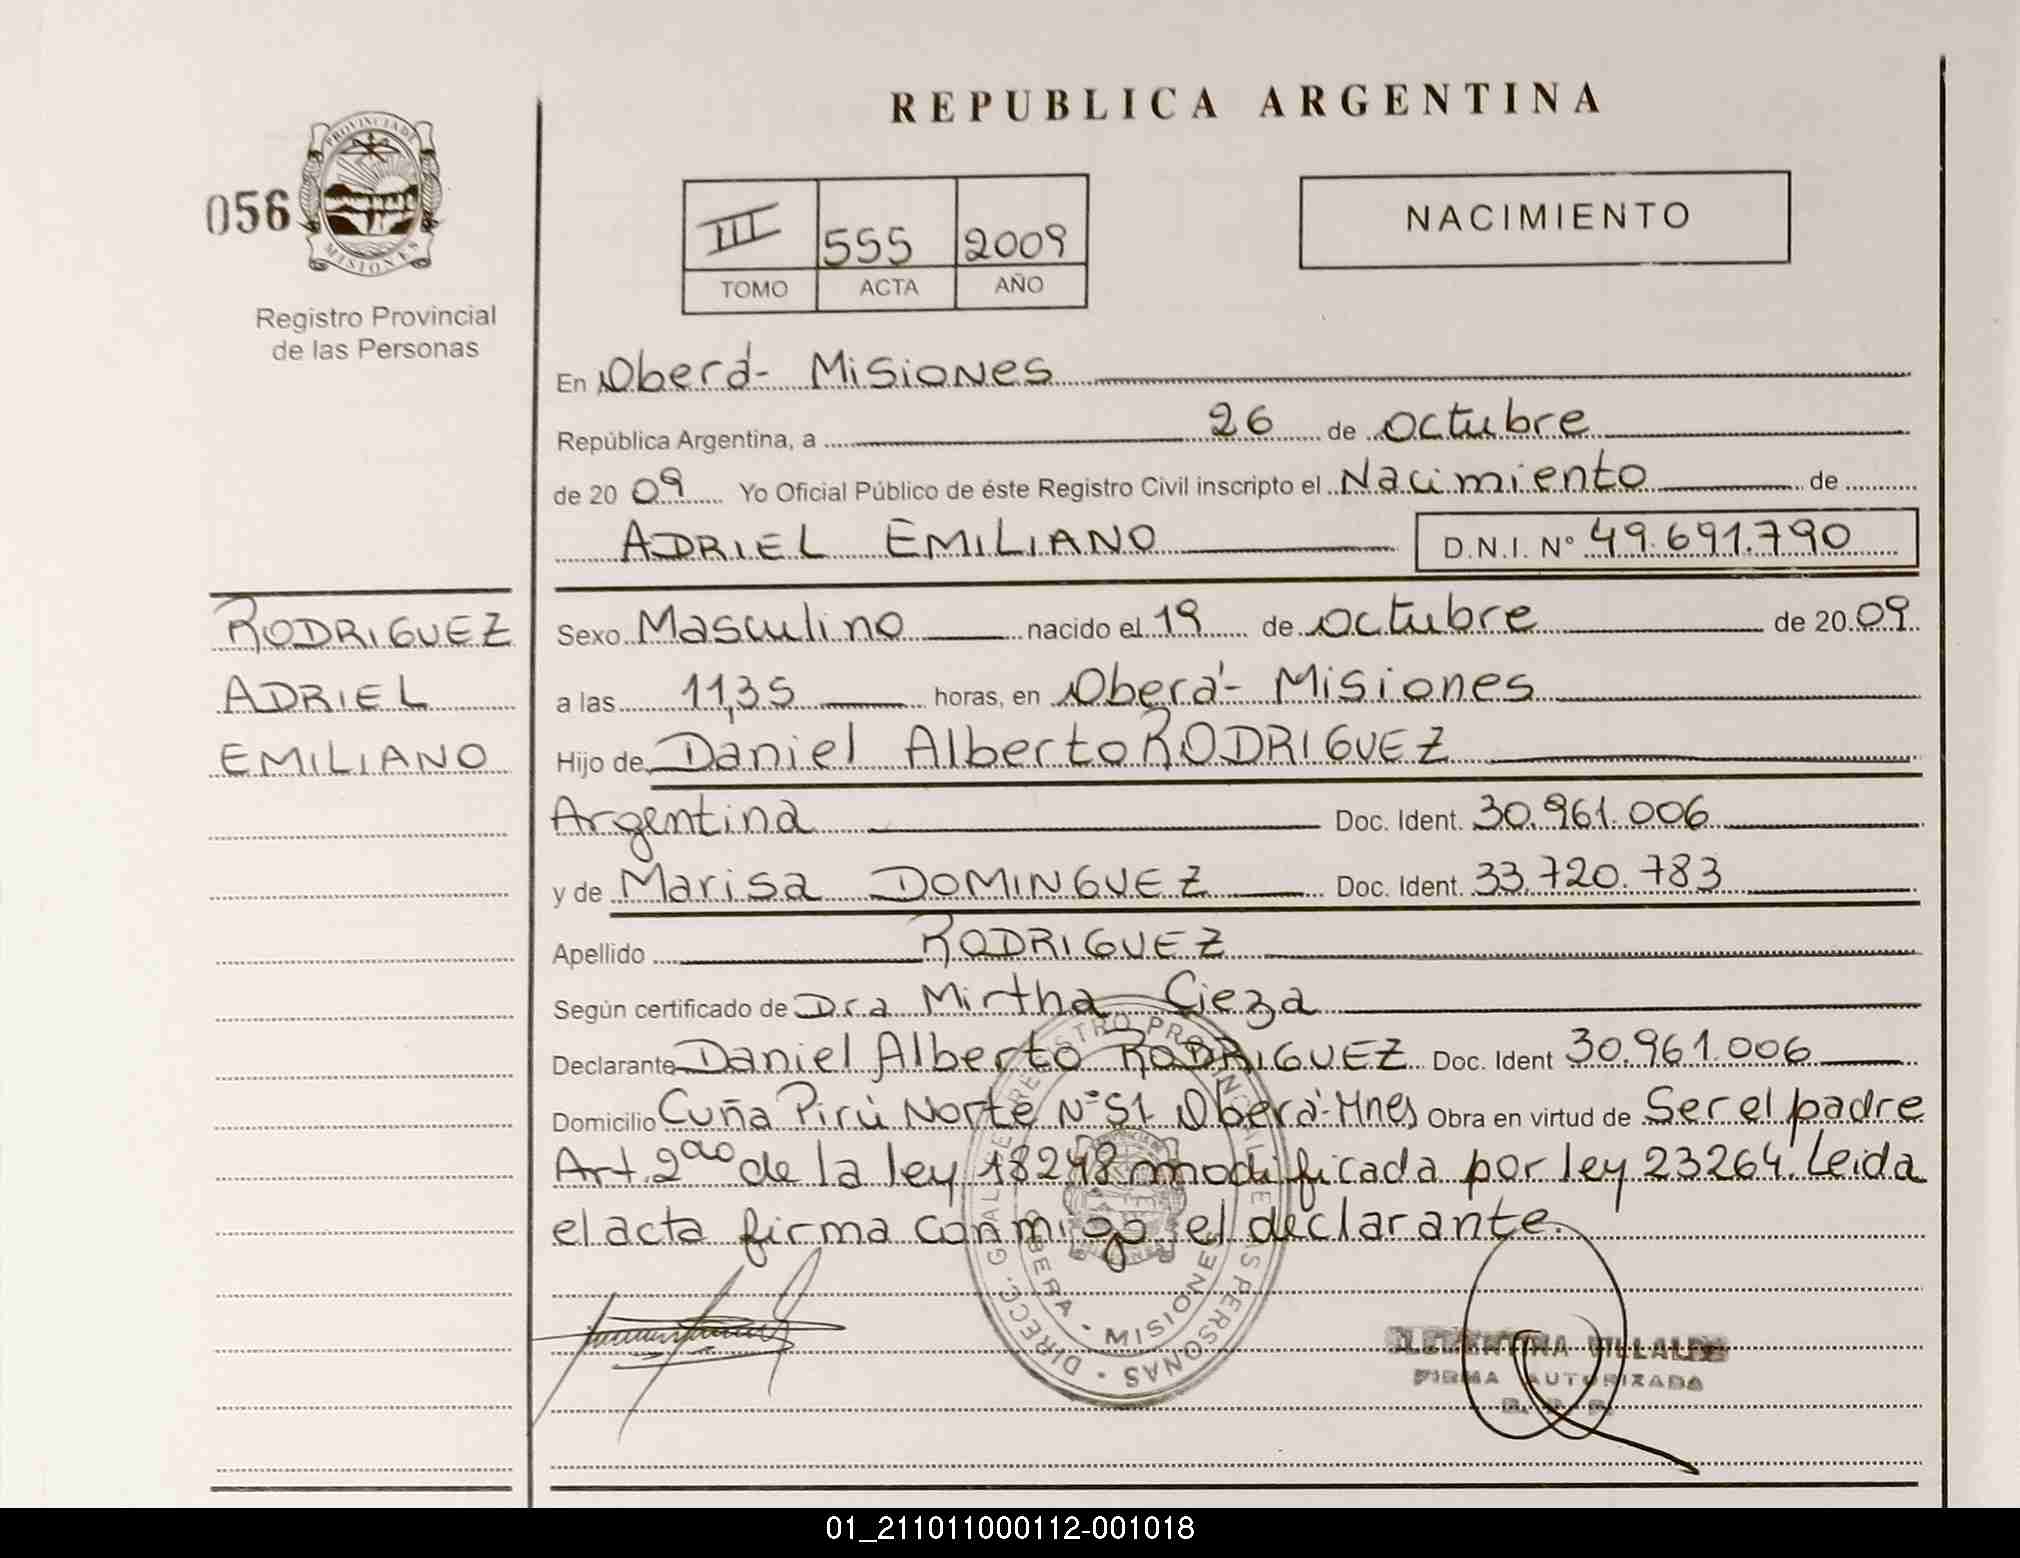 REPUBLICA ARGENTINA
056
PROVINCIA DE
MISIONES
Registro Provincial
de las Personas
III 555 2009
TOMO ACTA AÑO
NACIMIENTO
En Oberá - Misiones
República Argentina, a 26 de octubre
de 20 09 Yo Oficial Público de éste Registro Civil inscripto el Nacimiento de
ADRIEL EMILIANO D.N.I. N° 49.691.790
RODRIGUEZ
ADRIEL
EMILIANO
Sexo Masculino nacido el 19 de octubre de 20 09
a las 11,35 horas, en Oberá - Misiones
Hijo de Daniel Alberto RODRIGUEZ
Argentina Doc. Ident. 30.961.006
y de Marisa DOMINGUEZ Doc. Ident. 33.720.783
Apellido RODRIGUEZ
Según certificado de Dra Mirtha Cieza
Declarante Daniel Alberto RODRIGUEZ Doc. Ident 30.961.006
Domicilio Cuña Pirú Norte N° 51 Oberá - Mnes Obra en virtud de Ser el padre
Art. 2do de la ley 18248 modificada por ley 23264. Leida
el acta firma conmigo el declarante.
DIRECC. GRAL. DE REGISTRO PROVINCIAL DE LAS PERSONAS
OBERA - MISIONES
CLEMENTINA VILLALBA
FIRMA AUTORIZADA
01_211011000112-001018